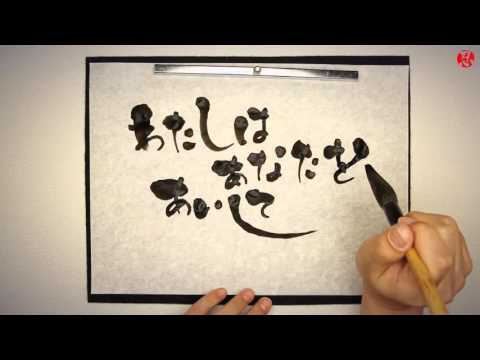 わたしは
あなたを
あいして